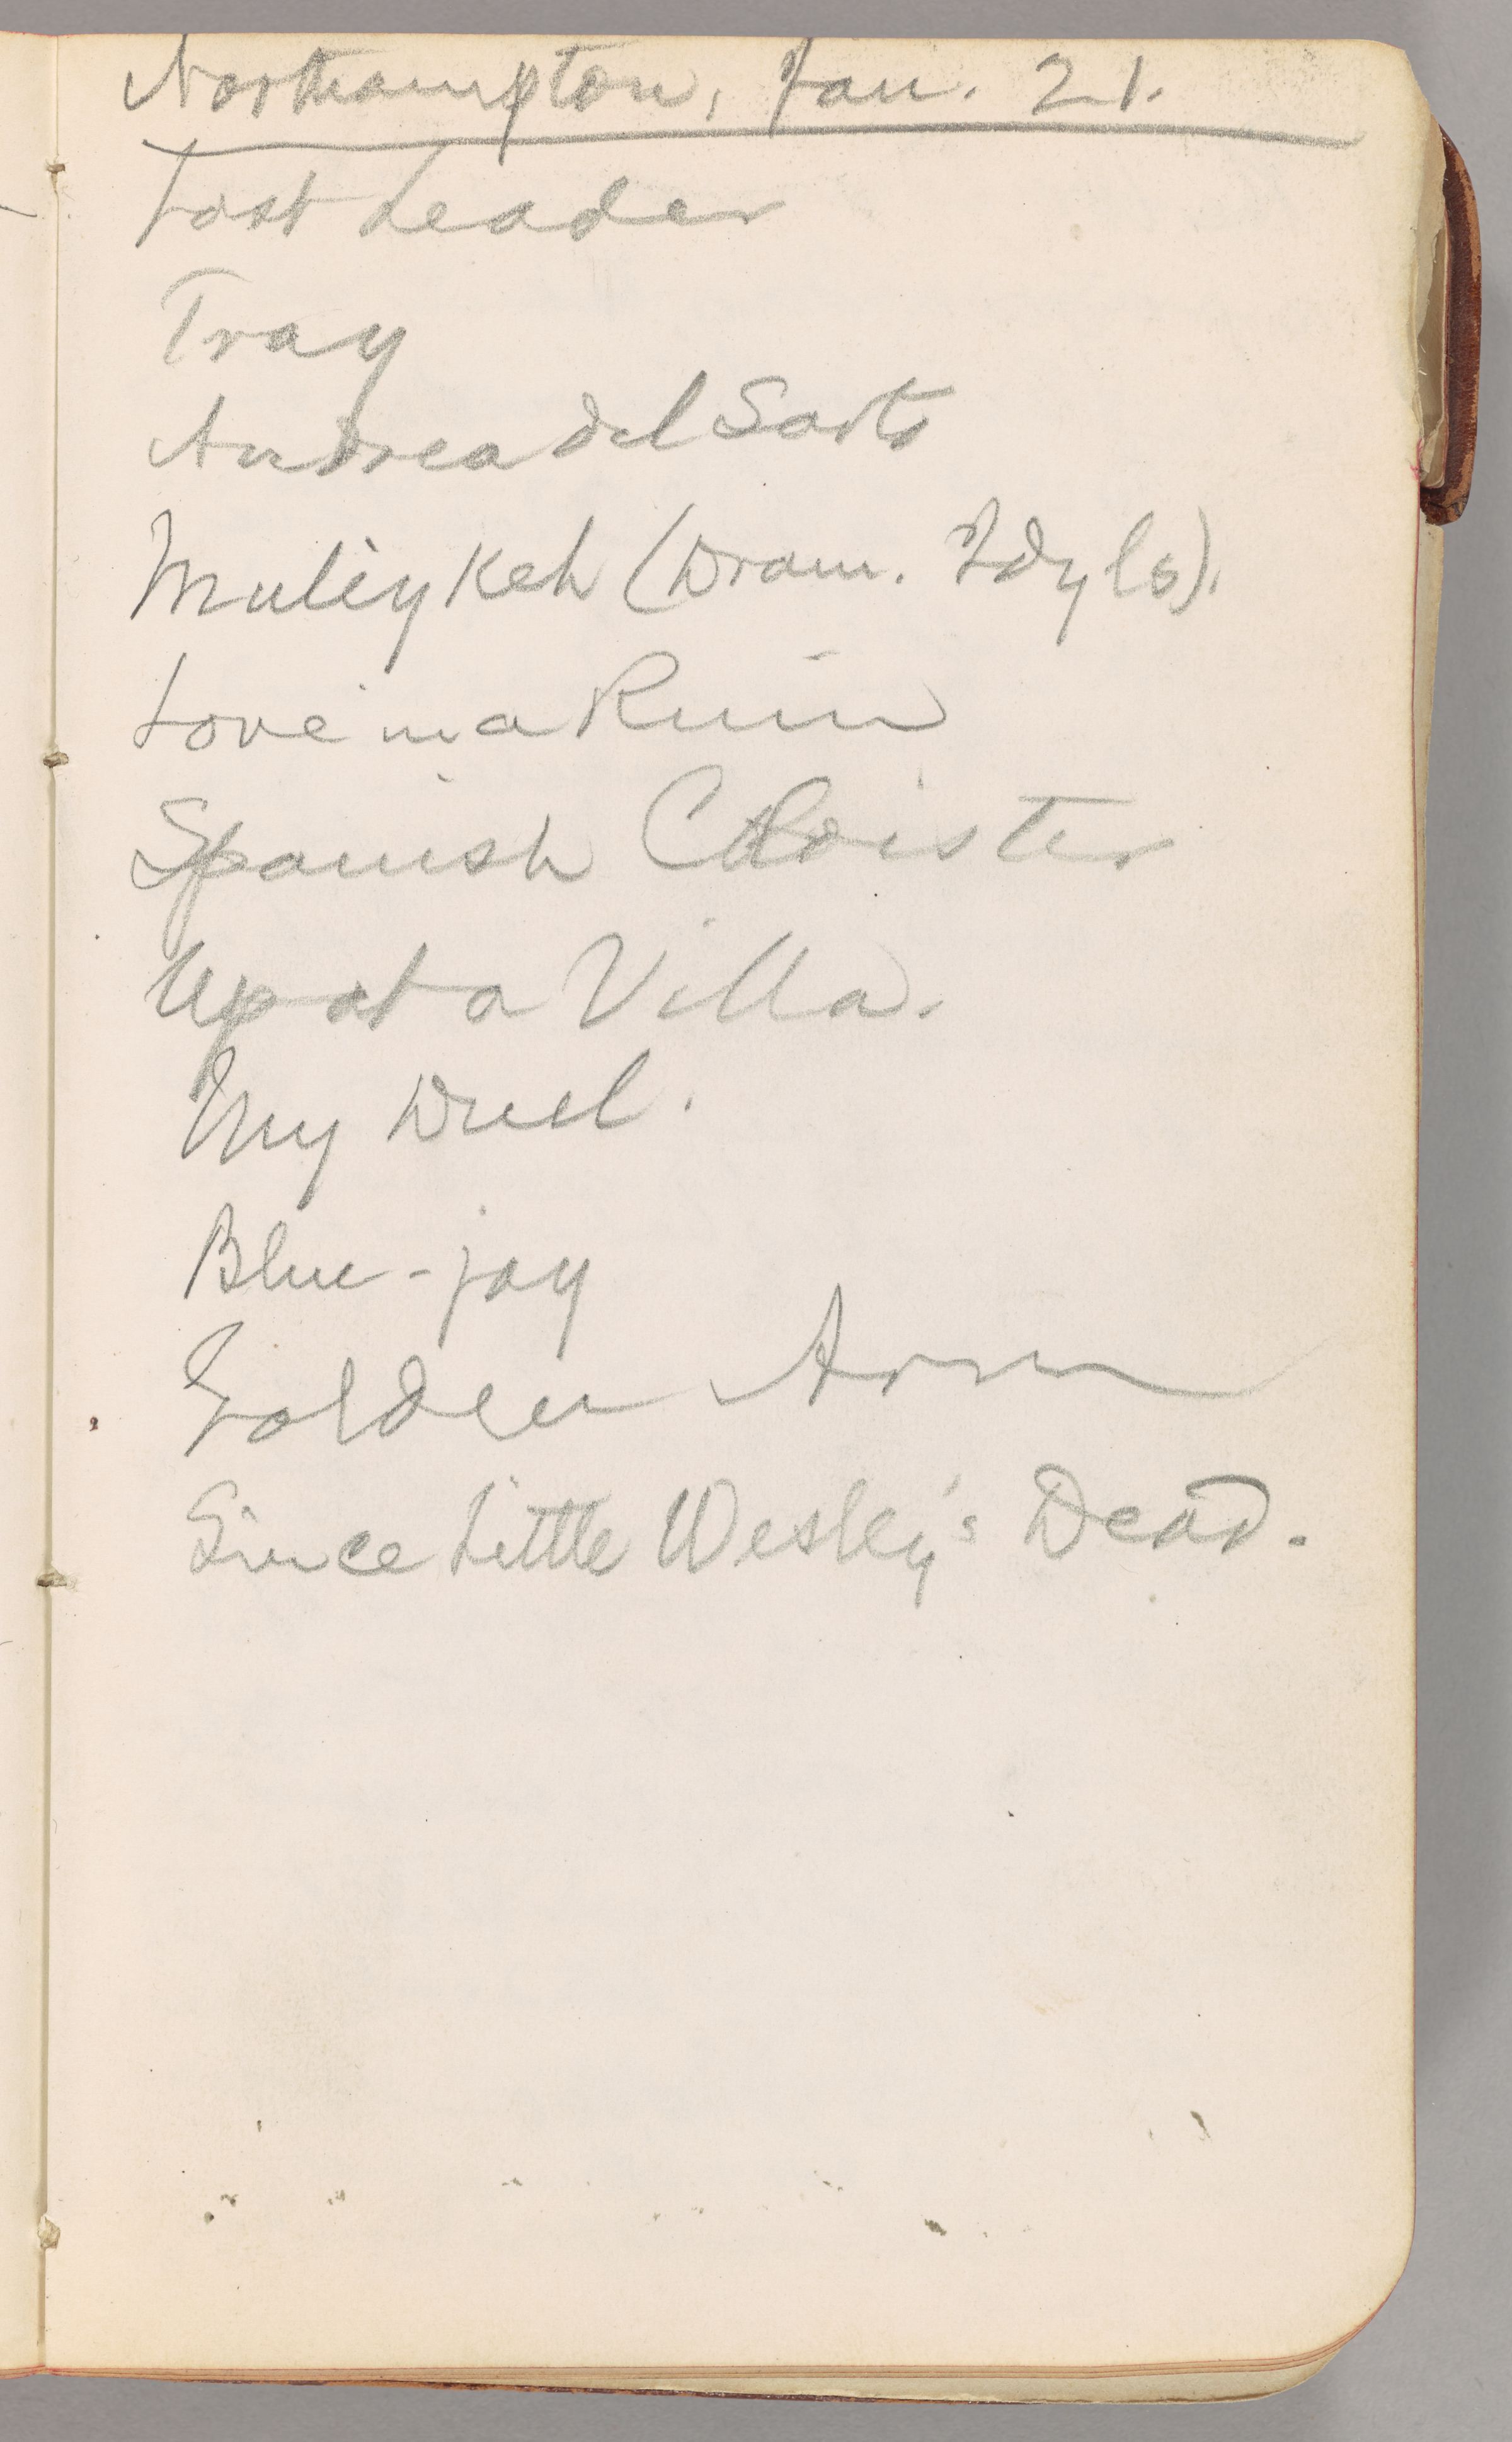 Northampton, Jan. 21.
Lost Leader
Tray
Andrea del Sarto
Muleykeh (Dram. Idyls).
Love in a Ruin
Spanish Cloister
Up at a Villa.
My Duel.
Blue-jay
Golden Arm
Since Little Wesley's Dead.